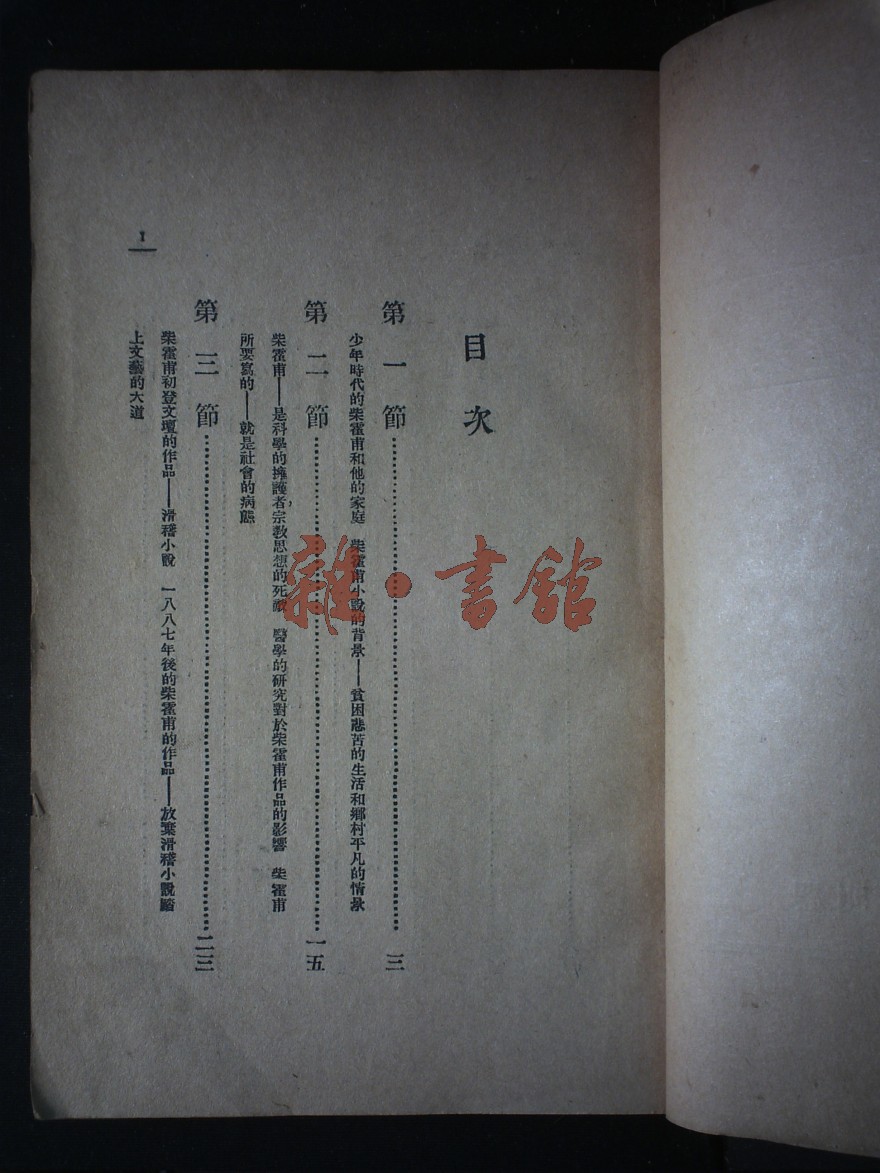 目次
第一節……三
少年時代的柴霍甫和他的家庭　柴霍甫小說的背景——貧困愁苦的生活和鄉村平凡的情景
第二節……一五
柴霍甫——是科學的擁護者，宗教思想的死敵　醫學的研究對於柴霍甫作品的影響　柴霍甫
所要寫的——就是社會的病態
第三節……二三
柴霍甫初登文壇的作品——滑稽小說　一八八七年後的柴霍甫的作品——放棄滑稽小說踏
上文藝的大道
1
雜·書館